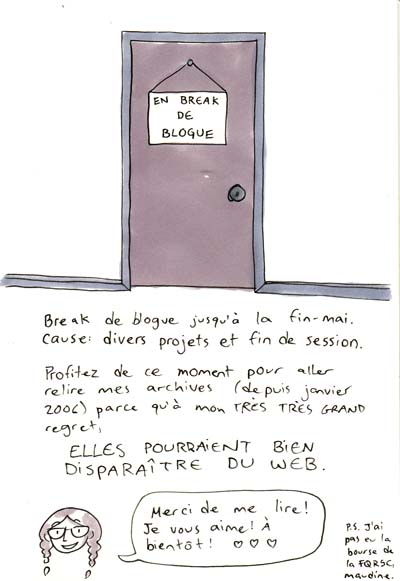 EN BREAK
DE
BLOGUE
Break de blogue jusqu'à la fin-mai.
Cause: divers projets et fin de session.
Profitez de ce moment pour aller
relire mes archives (depuis janvier
2006) parce qu'à mon TRÈS TRÈS GRAND
regret,
ELLES POURRAIENT BIEN
DISPARAÎTRE DU WEB.
Merci de me lire!
Je vous aime! À
bientôt! ♡ ♡ ♡
P.S. J'ai
pas eu la
bourse de
la FQRSC,
maudine.